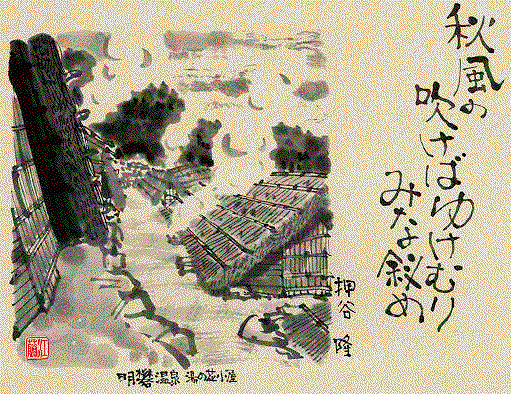 秋風の
吹けばゆけむり
みな斜め
押谷 隆
明礬温泉 湯の花小屋